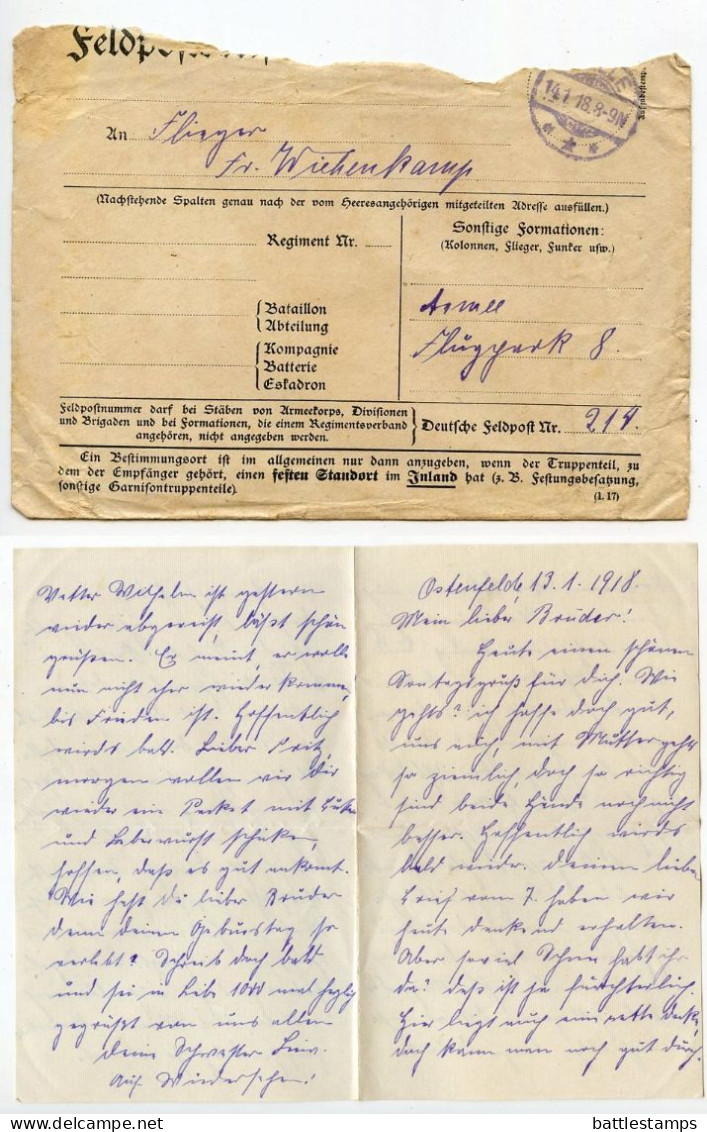 Feldpost
14.1.18.8-9N
An Flieger
Fr. Wiehenkamp
(Nachstehende Spalten genau nach der vom Heeresangehörigen mitgeteilten Adresse ausfüllen.)
Regiment Nr.
Bataillon
Abteilung
Kompagnie
Batterie
Eskadron
Sonstige Formationen:
(Kolonnen, Flieger, Funker usw.)
Armee
Flugpark 8.
Feldpostnummer darf bei Stäben von Armeekorps, Divisionen
und Brigaden und bei Formationen, die einem Regimentsverband
angehören, nicht angegeben werden.
Deutsche Feldpost Nr. 214.
Ein Bestimmungsort ist im allgemeinen nur dann anzugeben, wenn der Truppenteil, zu
dem der Empfänger gehört, einen festen Standort im Inland hat (z. B. Festungsbesatzung,
sonstige Garnisontruppenteile).
(1. 17)
Ostenfelde, 13.1.1918.
Mein lieber Bruder!
Heute einen schönen
Sontagsgruß für dich. Wie
gehts? ich hoffe doch gut,
uns auch, mit Mutter gehts
so ziemlich, doch so richtig
sind beide Hände noch nicht
besser. Hoffentlich wirds
bald wieder. Deinen lieben
Brief vom 7. haben wir
heute dankend erhalten.
Aber soviel Schnee habt ihr
da? daß ist ja fürchterlich.
Hier liegt auch eine
doch kann man noch gut durch.
Vetter Wilhelm ist gestern
wieder abgereist, läßt schön
grüßen. Er meint, er wolle
nun nicht eher wieder kommen,
bis Frieden ist. Hoffentlich
wirds bald. Lieber Fritz,
morgen wollen wir Dir
wieder ein Packet mit
und Leberwurst schicken,
hoffen, daß es gut ankomt.
Wie hast Du lieber Bruder
denn deinen Geburtstag so
verlebt? Schreib doch bald
und sei in Liebe 1000 mal herzlich
gegrüßt von uns allen
Deine Schwester
Auf Wiedersehen!
battlestamps